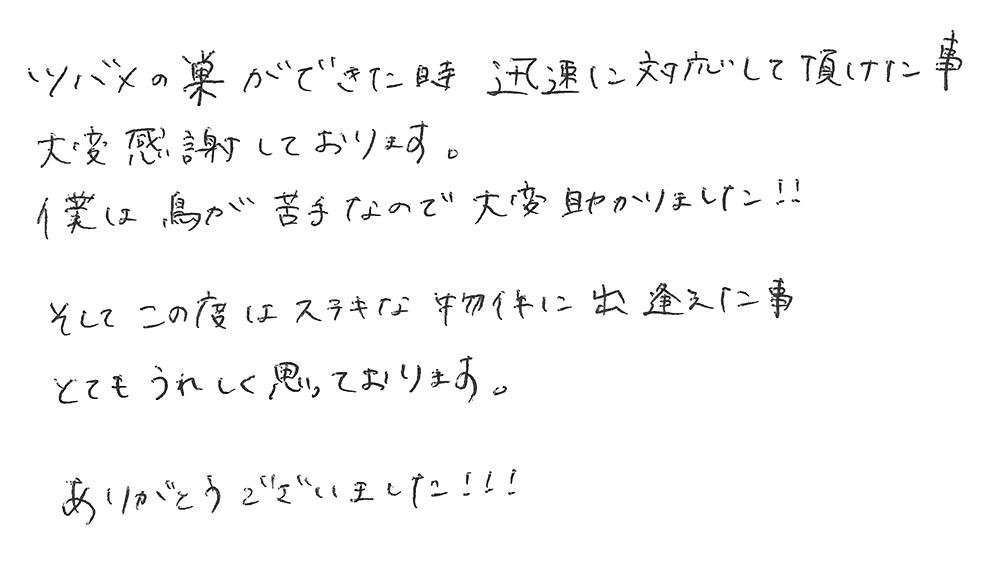 ツバメの巣ができた時 迅速に対応して頂けた事
大変感謝しております。
僕は鳥が苦手なので大変助かりました!!
そしてこの度はステキな物件に出逢えた事
とてもうれしく思っております。
ありがとうございました!!!